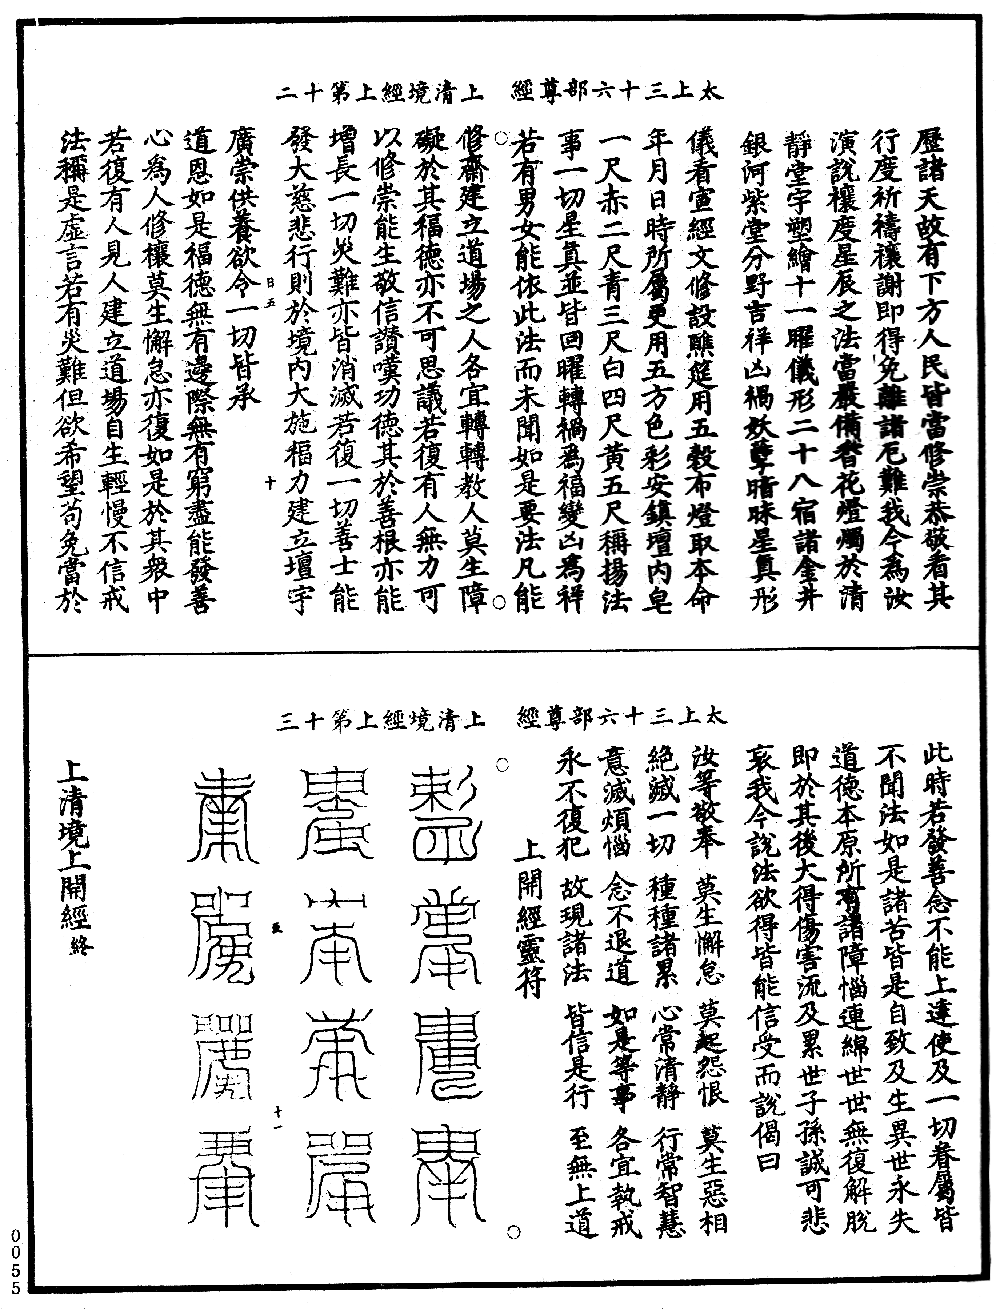 太上三十六部尊經　上清境經上第十二
歷諸天故有下方人民皆當修崇恭敬看其
行度祈禱禳謝即得免離諸厄難我今為汝
演說禳度星辰之法當嚴備香花燈燭於清
靜堂宇塑繪十一曜儀形二十八宿諸金井
銀河紫堂分野吉祥凶禍妖孽暗昧星真形
儀看宣經文修設醮筵用五穀布燈取本命
年月日時所屬更用五方色彩安鎮壇內皂
一尺赤二尺青三尺白四尺黃五尺稱揚法
事一切星真並皆回曜轉禍為福變凶為祥
若有男女能依此法而未聞如是要法凡能
修齋建立道場之人各宜轉轉教人莫生障
礙於其福德亦不可思議若復有人無力可
以修崇能生敬信讚嘆功德其於善根亦能
增長一切災難亦皆消滅若復一切善士能
發大慈悲行則於境內大施福力建立壇宇
日五　十
廣崇供養欲令一切皆承
道恩如是福德無有邊際無有窮盡能發善
心為人修禳莫生懈怠亦復如是於其眾中
若復有人見人建立道場自生輕慢不信戒
法稱是虛言若有災難但欲希望苟免當於
太上三十六部尊經　上清境經上第十三
此時若發善念不能上達使及一切眷屬皆
不聞法如是諸苦皆是自致及生異世永失
道德本原所有諸障惱連綿世世無復解脫
即於其後大得傷害流及累世子孫誠可悲
哀我今說法欲得皆能信受而說偈曰
汝等敬奉　莫生懈怠　莫起怨恨　莫生惡相
絕滅一切　種種諸累　心常清靜　行常智慧
意滅煩惱　念不退道　如是等事　各宜執戒
永不復犯　故現諸法　皆信是行　至無上道
上開經靈符
十一
上清境上開經終
0055